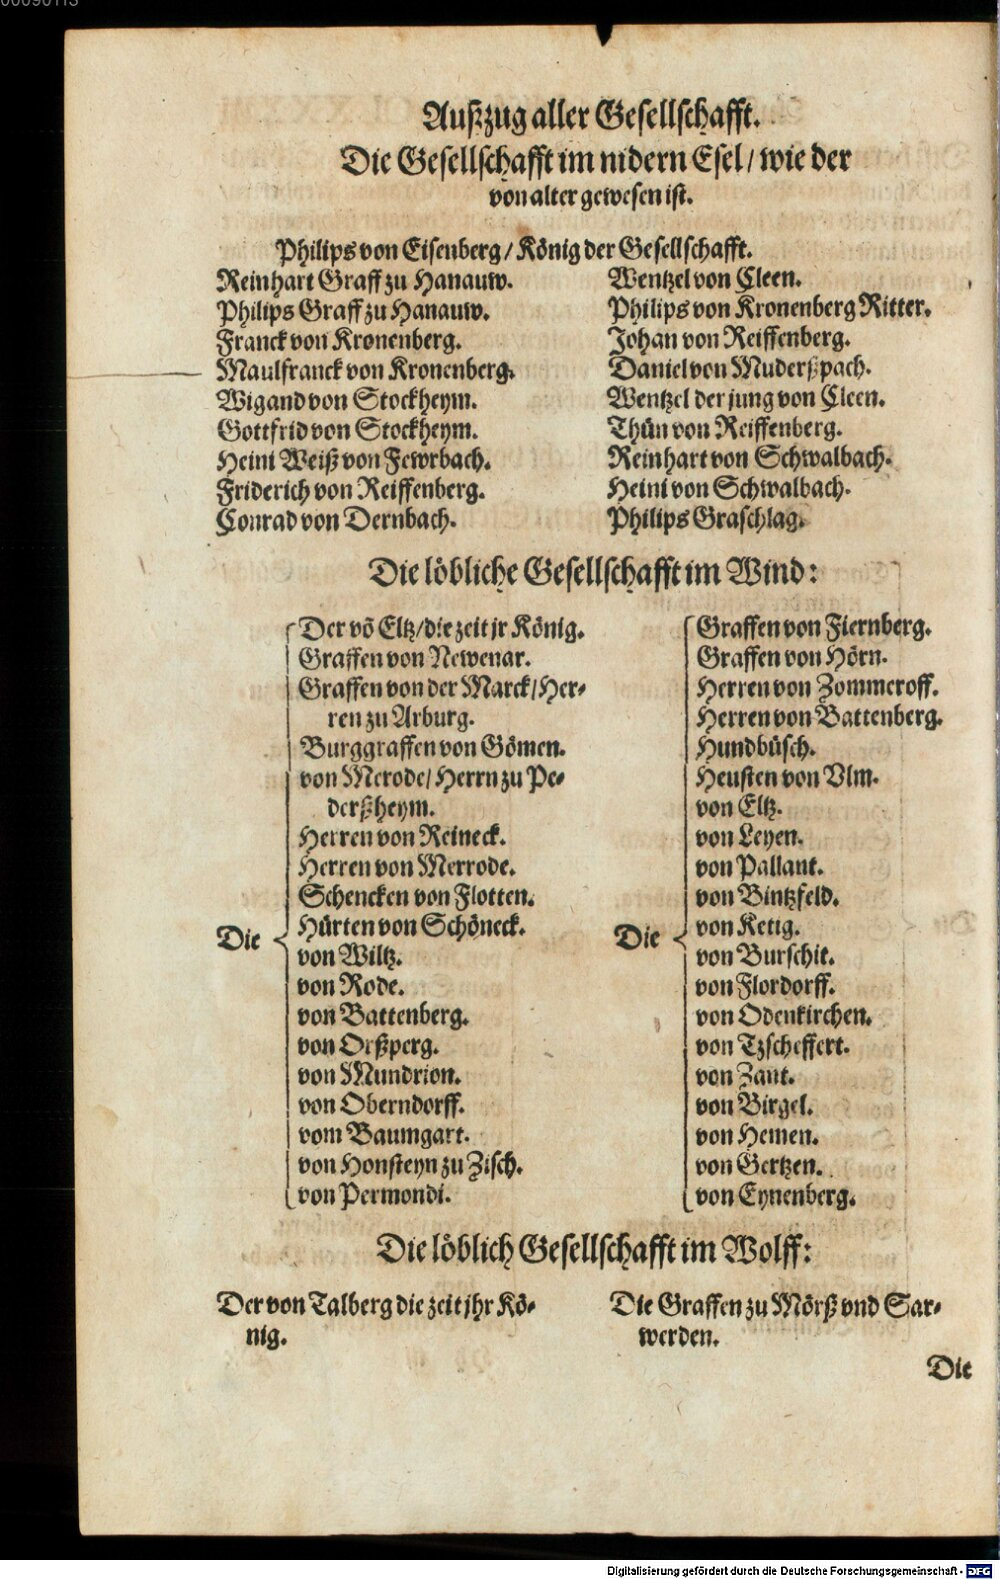 Außzug aller Gesellschafft.
Die Gesellschafft im nidern Esel / wie der
von alter gewesen ist.
Philips von Eisenberg / König der Gesellschafft.
Reinhart Graff zu Hanauw.
Philips Graff zu Hanauw.
Franck von Kronenberg.
Maulfranck von Kronenberg.
Wigand von Stockheym.
Gottfrid von Stockheym.
Heini Weiß von Fewrbach.
Friderich von Reiffenberg.
Conrad von Dernbach.
Wentzel von Cleen.
Philips von Kronenberg Ritter.
Johan von Reiffenberg.
Daniel von Muderßpach.
Wentzel der jung von Cleen.
Thün von Reiffenberg.
Reinhart von Schwalbach.
Heini von Schwalbach.
Philips Graschlag.
Die löbliche Gesellschafft im Wind:
Die
Der võ Eltz / die zeit jr König.
Graffen von Newenar.
Graffen von der Marck / Her-
ren zu Arburg.
Burggraffen von Gömen.
von Merode / Herrn zu Pe-
derßheym.
Herren von Reineck.
Herren von Merrode.
Schencken von Flotten.
Hürten von Schöneck.
von Wiltz.
von Rode.
von Battenberg.
von Orßperg.
von Mundrion.
von Oberndorff.
vom Baumgart.
von Honsteyn zu Zisch.
von Permondi.
Die
Graffen von Fiernberg.
Graffen von Hörn.
Herren von Zommeroff.
Herren von Battenberg.
Hundbüsch.
Heusten von Vlm.
von Eltz.
von Leyen.
von Pallant.
von Bintzfeld.
von Ketig.
von Burschit.
von Flordorff.
von Odenkirchen.
von Tzscheffert.
von Zant.
von Birgel.
von Hemen.
von Gertzen.
von Eynenberg.
Die löblich Gesellschafft im Wolff:
Der von Talberg die zeit jhr Kö-
nig.
Die Graffen zu Mörß vnd Sar-
werden.
Die
Digitalisierung gefördert durch die Deutsche Forschungsgemeinschaft - DFG